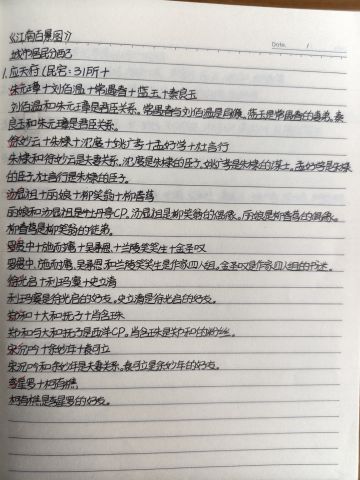 《江南百景图》
Date. /
城市居民分配
1.应天府(民宅:31所+
朱元璋+刘伯温+常遇春+蓝玉+秦良玉
刘伯温和朱元璋是君臣关系。常遇春与刘伯温是同僚。蓝玉是常遇春的妻弟。秦
良玉和朱元璋是君臣关系。
徐妙云+朱棣+沈度+姚广孝+孟好学+杜言行
朱棣和徐妙云是夫妻关系。沈度是朱棣的臣子。姚广孝是朱棣的谋士。孟好学是朱棣
的臣子。杜言行是朱棣的臣子。
汤显祖+丽娘+柳笑翁+柳春莺
丽娘和汤显祖是牡丹亭CP。汤显祖是柳笑翁的偶像。丽娘是柳春莺的偶像。
柳春莺是柳笑翁的徒弟。
罗贯中+施耐庵+吴承恩+兰陵笑笑生+金圣叹
罗贯中、施耐庵、吴承恩和兰陵笑笑生是作家四人组。金圣叹是作家四人组的书迷。
徐光启+利玛窦+史立清
利玛窦是徐光启的好友。史立清是徐光启的好友。
郑和+大和抚子+肖名珠
郑和与大和抚子是西洋CP。肖名珠是郑和的粉丝。
宋沉吟+余妙年+袁可立
宋沉吟和余妙年是夫妻关系。袁可立是余妙年的好友。
李星罗+柯有樵
柯有樵是李星罗的好友。